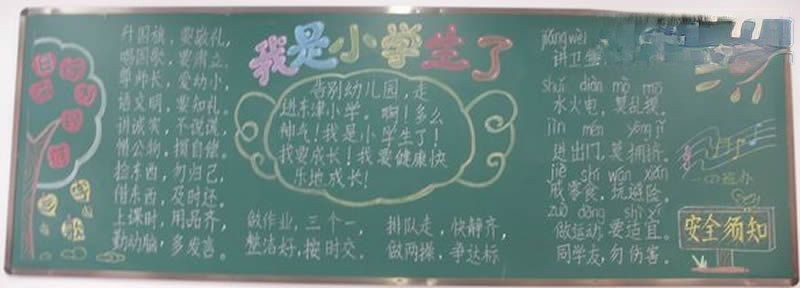 我是小学生了
升国旗，要敬礼，
唱国歌，要肃立，
尊师长，爱幼小，
语文明，要知礼。
讲诚实，不说谎，
惜公物，损自偿。
捡东西，勿归己，
借东西，及时还。
上课时，用品齐，
勤动脑，多发言。
告别幼儿园，走
进东津小学。啊！多么
神气！我是小学生了！
我要成长！我要健康快
乐地成长！
做作业，三个一，
整洁好，按时交。
排队走，快静齐，
做两操，争达标
jiǎng wèi
讲卫
shuǐ diàn mò mō
水火电，莫乱摸。
jìn mén yōng jǐ
进出门，莫拥挤。
jiè shí wán xiǎn
戒零食，玩避险。
zuò dòng shì yí
做运动，要适宜。
同学友，勿伤害。
安全须知